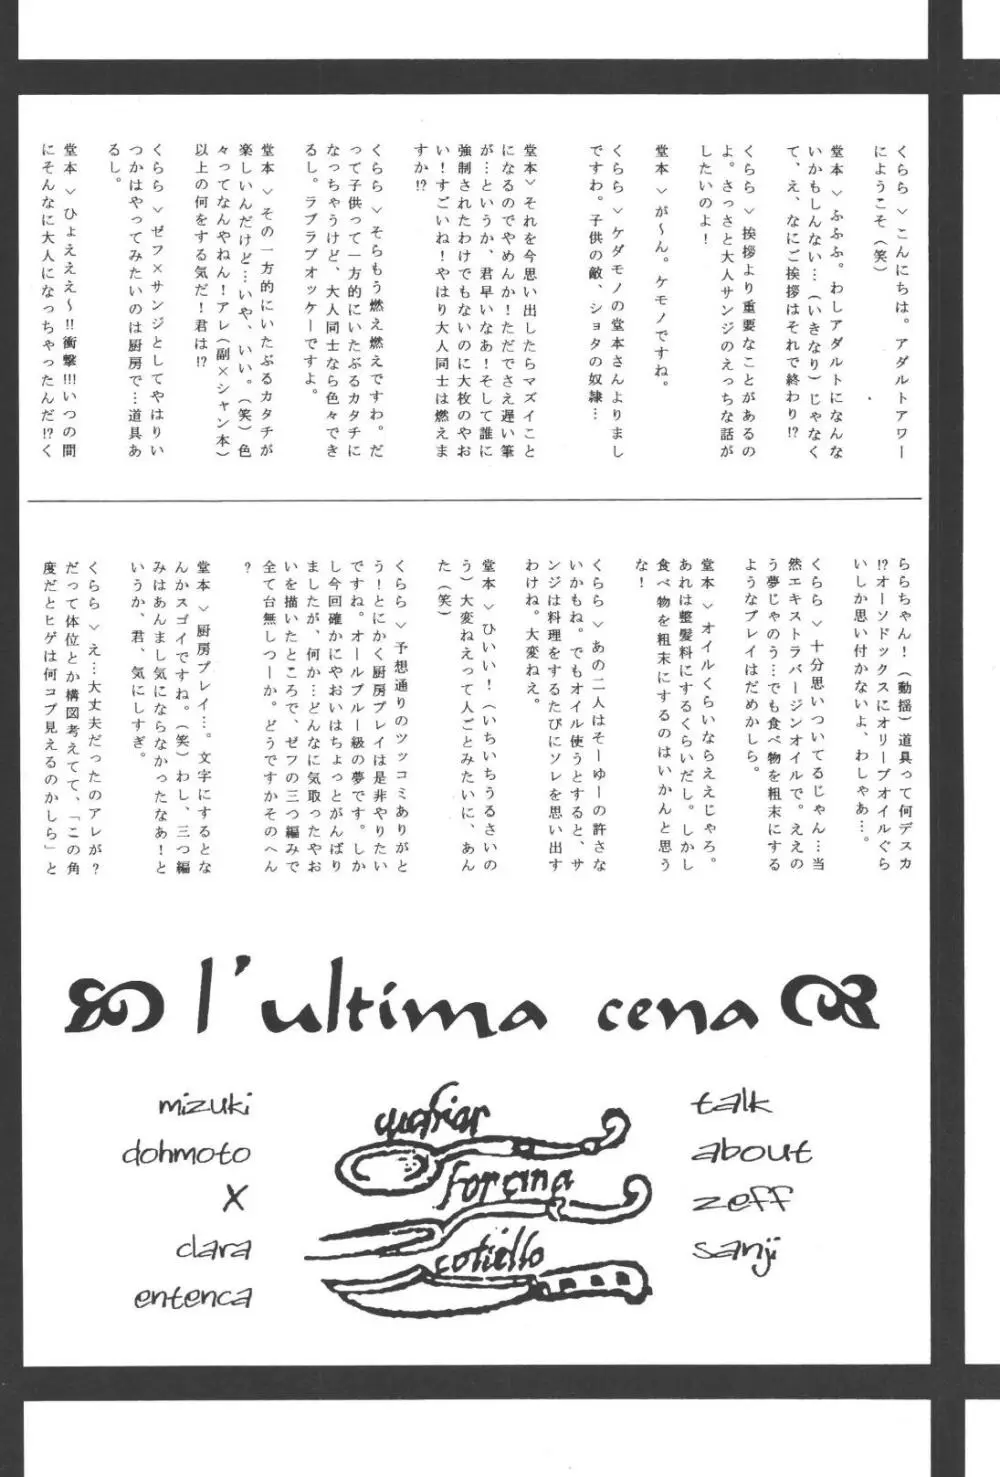 くらら＞こんにちは。アダルトアワー
にようこそ（笑）
堂本＞ふふふ。わしアダルトになんな
いかもしんない…（いきなり）じゃなく
て、え、なにご挨拶はそれで終わり!?
くらら＞挨拶より重要なことがあるの
よ。さっさと大人サンジのえっちな話が
したいのよ！
堂本＞が〜ん。ケモノですね。
くらら＞ケダモノの堂本さんよりまし
ですわ。子供の敵、ショタの奴隷…
堂本＞それを今思い出したらマズイこと
になるのでやめんか！ただでさえ遅い筆
が…というか、君早いなあ！そして誰に
強制されたわけでもないのに大枚のやお
い！すごいね！やはり大人同士は燃えま
すか!?
くらら＞そらもう燃え燃えですわ。だ
って子供って一方的にいたぶるカタチに
なっちゃうけど、大人同士なら色々でき
るし。ラブラブオッケーですよ。
堂本＞その一方的にいたぶるカタチが
楽しいんだけど…いや、いい。（笑）色
々ってなんやねん！アレ（副×シャン本）
以上の何をする気だ！君は!?
くらら＞ゼフ×サンジとしてやはりい
つかはやってみたいのは厨房で…道具あ
るし。
堂本＞ひょえええ〜!!衝撃!!!いつの間
にそんなに大人になっちゃったんだ!?く
ららちゃん！（動揺）道具って何デスカ
!?オーソドックスにオリーブオイルぐら
いしか思い付かないよ、わしゃあ…。
くらら＞十分思いついてるじゃん…当
然エキストラバージンオイルで。ええの
う夢じゃのう…でも食べ物を粗末にする
ようなプレイはだめかしら。
堂本＞オイルくらいならええじゃろ。
あれは整髪料にするくらいだし。しかし
食べ物を粗末にするのはいかんと思う
な！
くらら＞あの二人はそーゆーの許さな
いかもね。でもオイル使うとすると、サ
ンジは料理をするたびにソレを思い出す
わけね。大変ねえ。
堂本＞ひいい！（いちいちうるさいの
う）大変ねえって人ごとみたいに、あん
た（笑）
くらら＞予想通りのツッコミありがと
う！とにかく厨房プレイは是非やりたい
ですね。オールブルー級の夢です。しか
し今回確かにやおいはちょっとがんばり
ましたが、何か…どんなに気取ったやお
いを描いたところで、ゼフの三つ編みで
全て台無しつーか。どうですかそのへん
？
堂本＞厨房プレイ…。文字にするとな
んかスゴイですね。（笑）わし、三つ編
みはあんまし気にならなかったなあ！と
いうか、君、気にしすぎ。
くらら＞え…大丈夫だったのアレが？
だって体位とか構図考えてて、「この角
度だとヒゲは何コブ見えるのかしら」と
l'ultima cena
mizuki
dohmoto
X
clara
entenca
forcina
talk
about
zeff
sanji